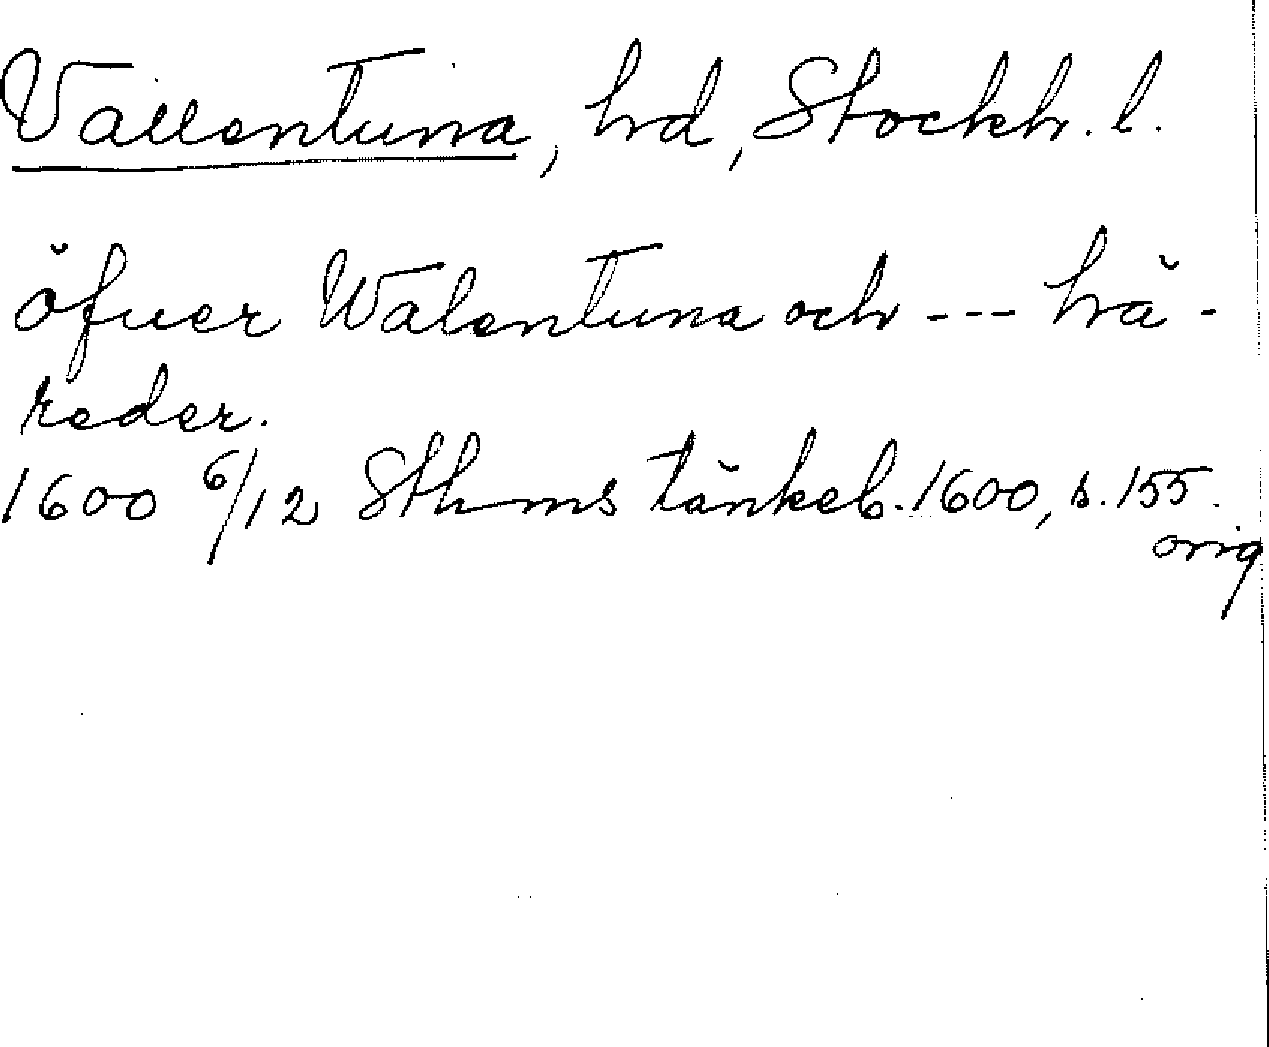 Vallentuna, hd, Stockh. l.
öfuer Walentuna och --- hä-
reder.
1600 6/12 Sthms tänkeb. 1600, s. 155.
orig